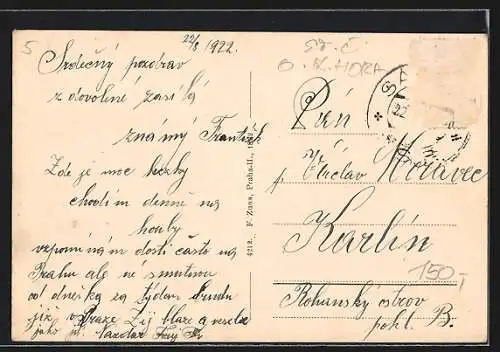 5
22/8 1922.
Srdečný pozdrav
z dovolené zasílá
známý František
Zde je moc hezky
chodím denně na
houby
vzpomínám dosti často na
Prahu ale ne smutně
od dneška za týden budu
již v Praze Žij blaze a vesele
jako já. Nazdar
4212. F. Zuna, Praha-II.
ST. Č.
O. K. HORA
Pán
p. Václav Moravec
Karlín
150,-
Rohanský ostrov
pohl. B.